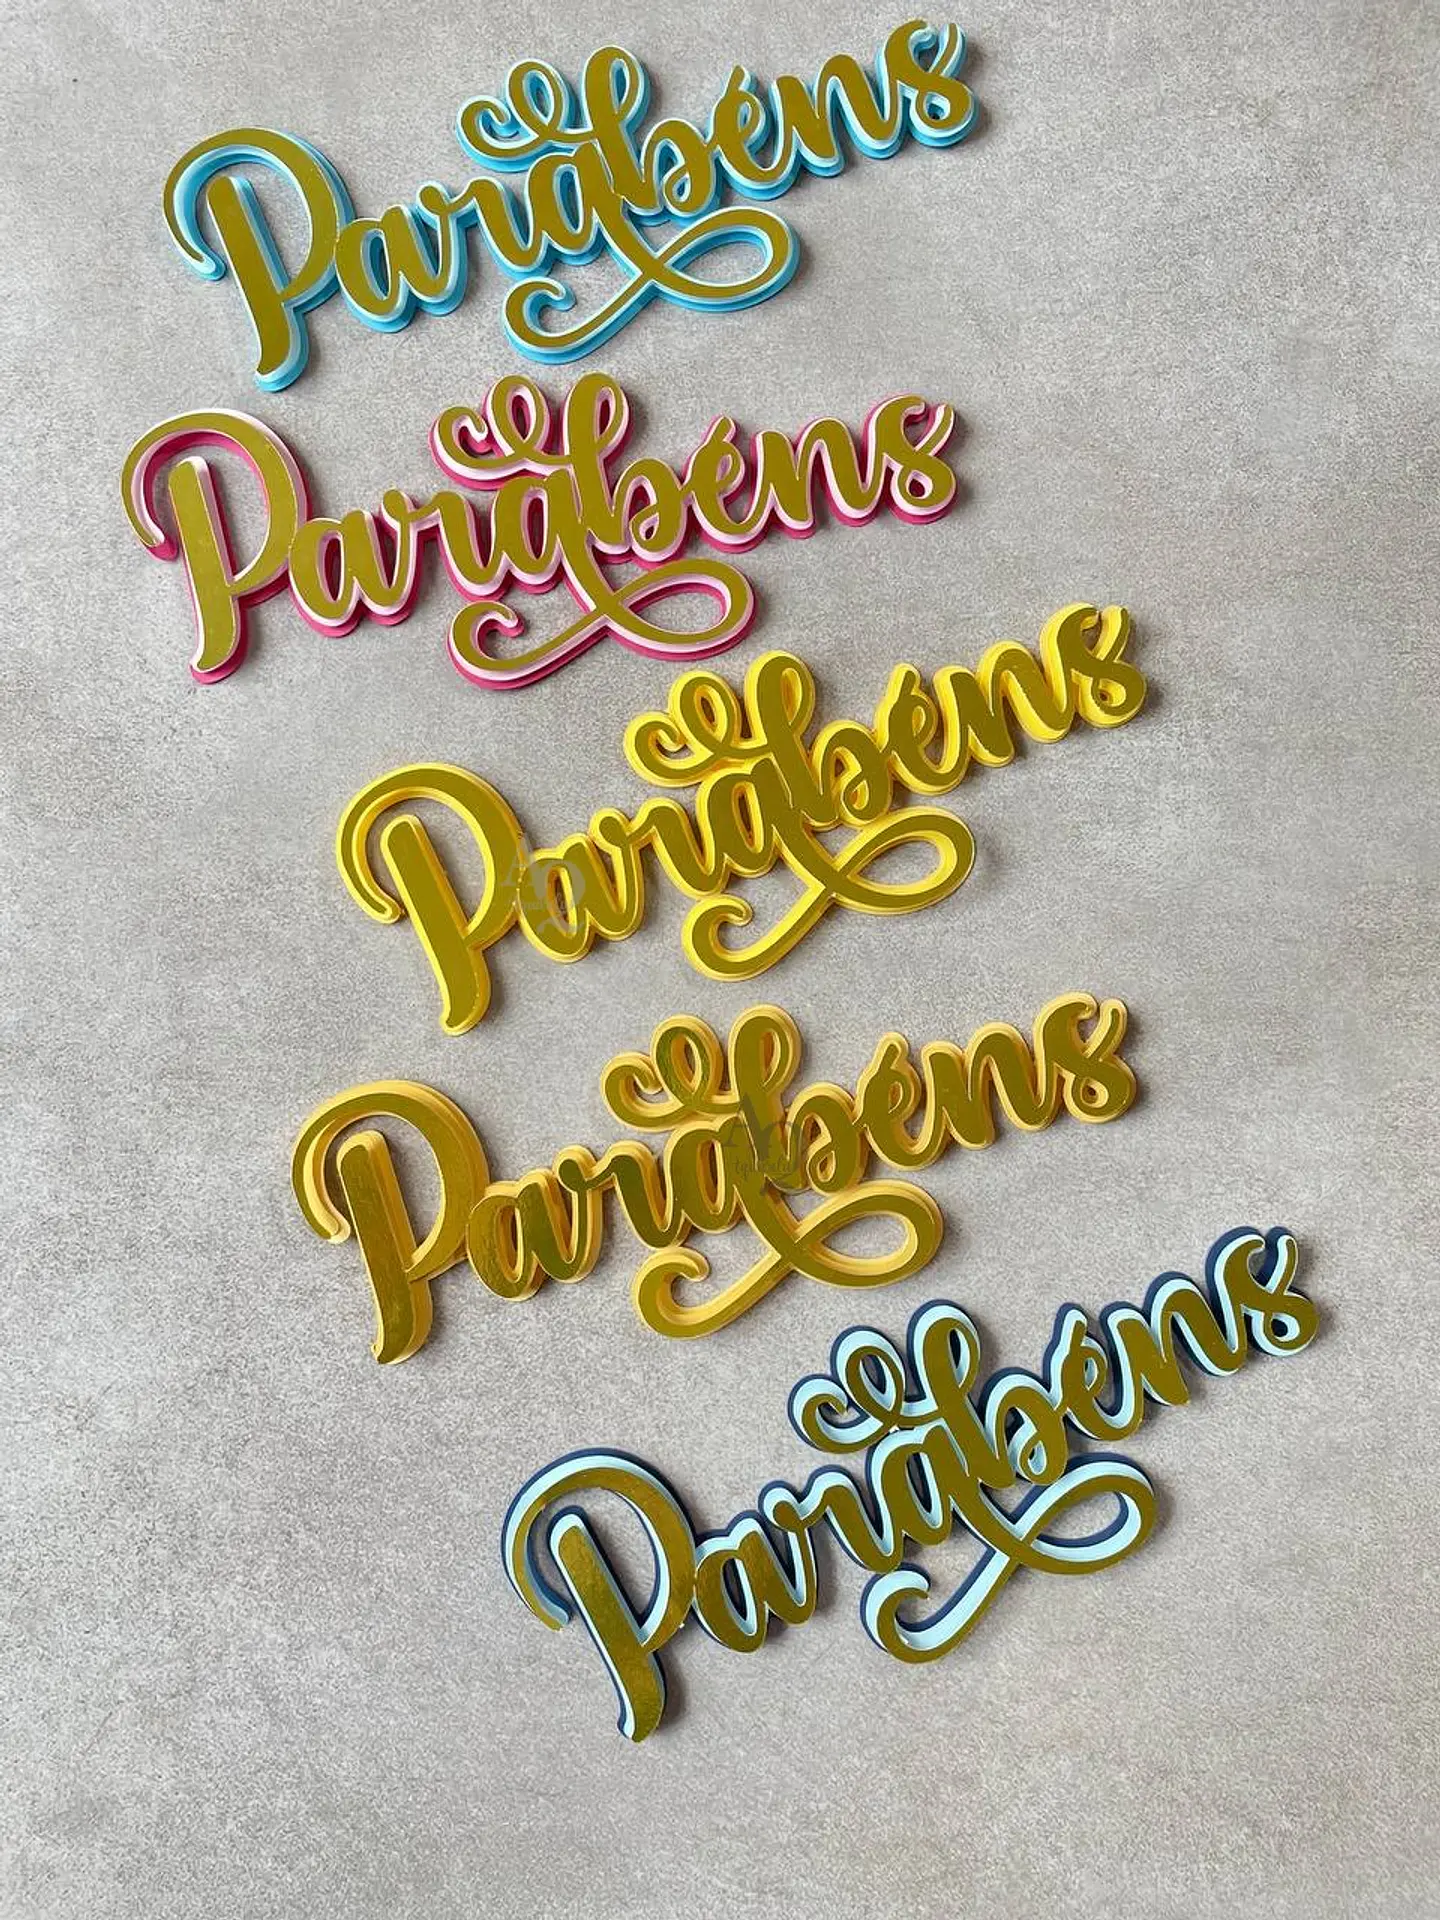 Parabéns
Parabéns
Parabéns
Parabéns
Parabéns